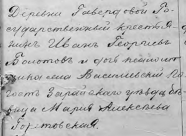 Деревни Гавердовой Го-
сударственный крестья-
нинъ Иванъ Георгиевъ
Болотовъ и дочь
Николаева Василевский По-
гостъ Зарайскаго уѣзда дѣ-
вица Мария Алексѣева
Горетовская.